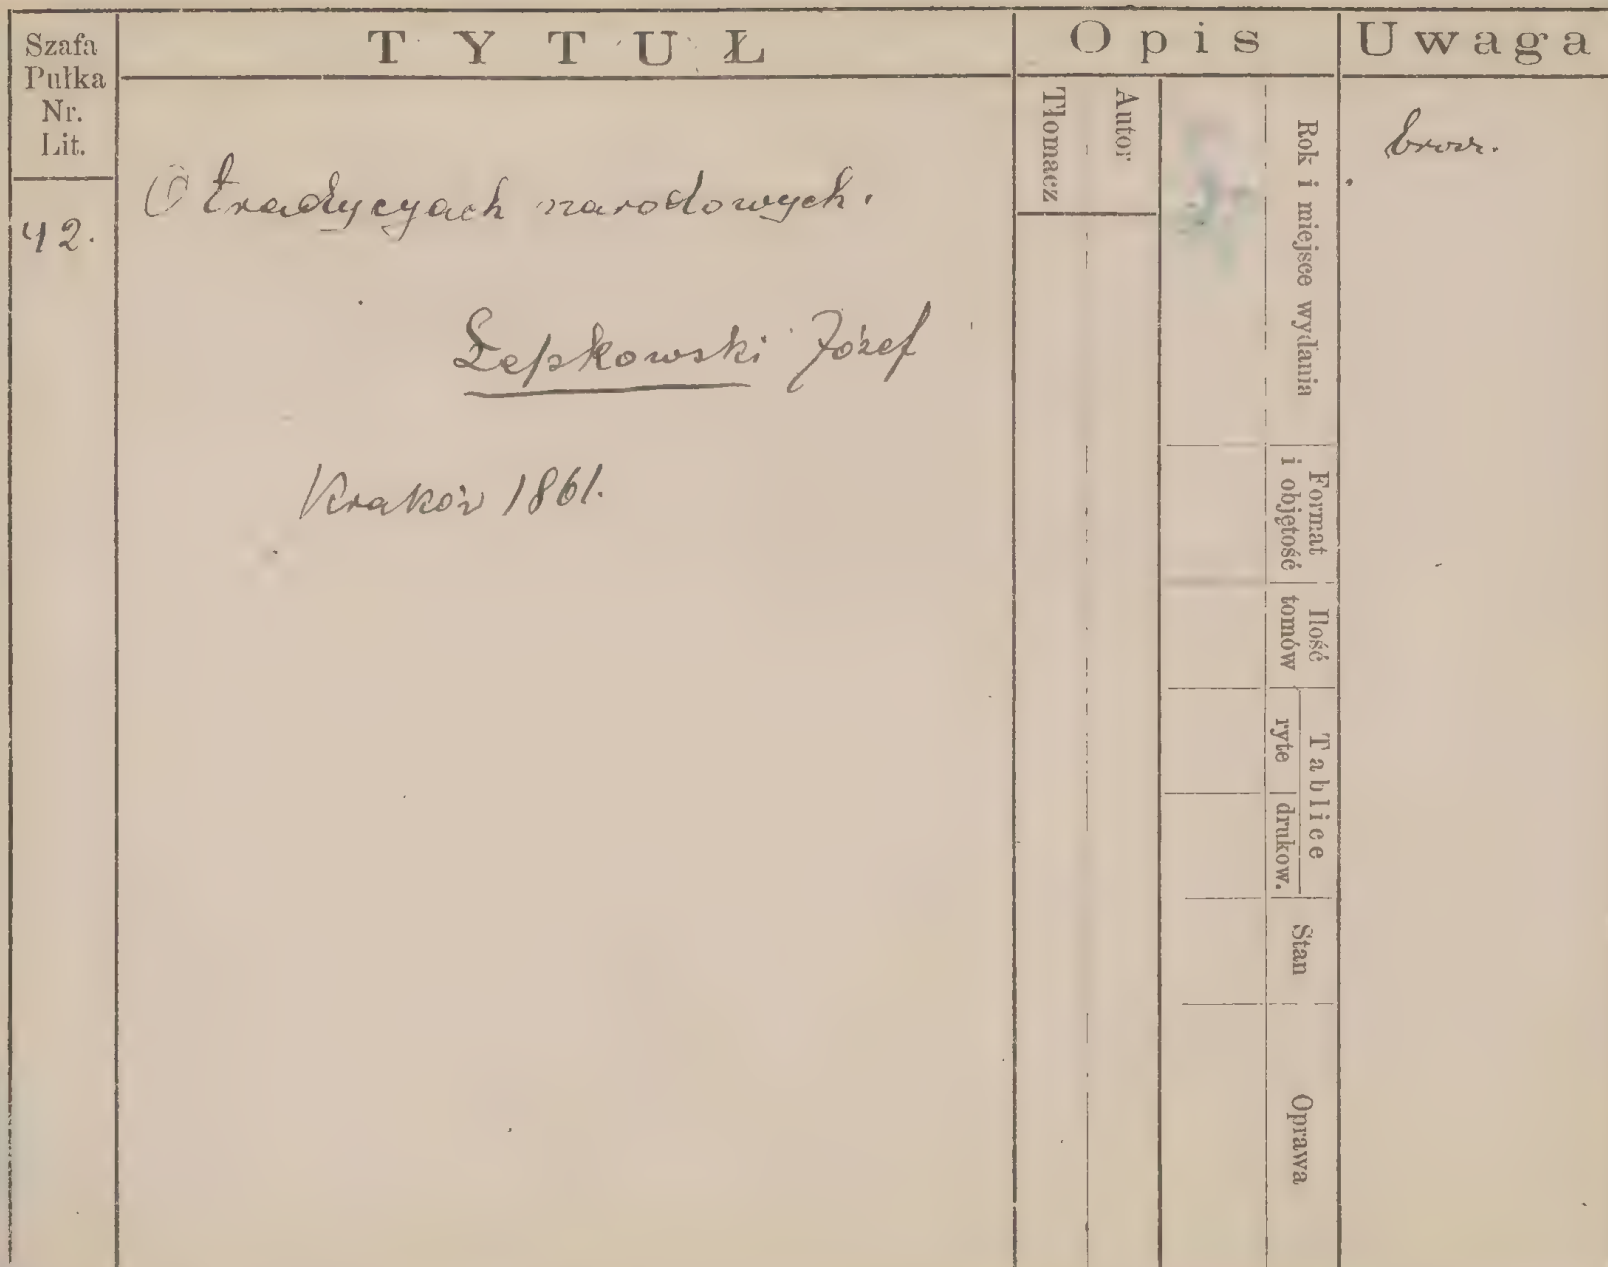 Szafa
Pułka
Nr.
Lit.
TYTUŁ
Opis
Uwaga
Tłomacz
Autor
Rok i miejsce wydania
Format
i objętość
Ilość
tomów
Tablice
ryte
drukow.
Stan
Oprawa
42.
O tradycyach narodowych.
Łepkowski Józef
Kraków 1861.
brosz.